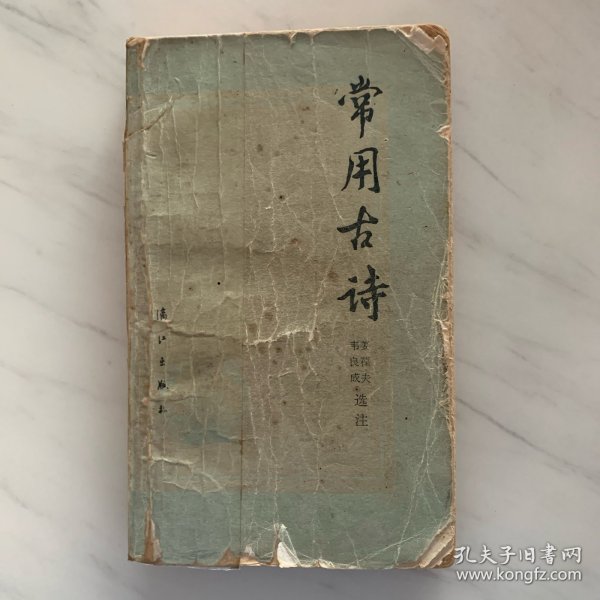 常用古诗
姜葆夫
韦良成
选注
漓江出版社
孔夫子旧书网
www.kongfz.com